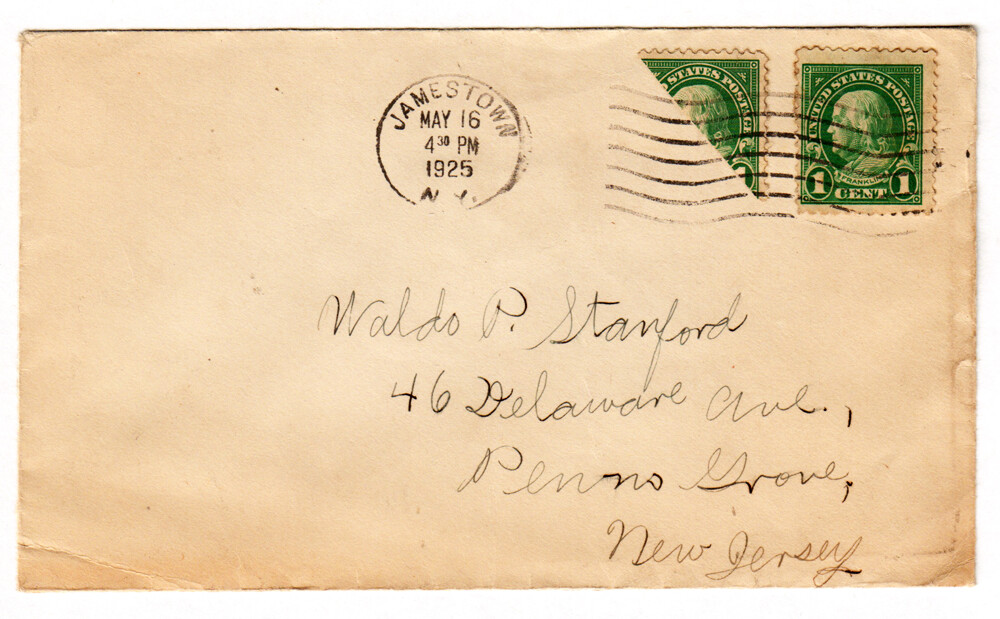 JAMESTOWN
MAY 16
4 30 PM
1925
N.Y.
STATES POSTAGE
UNITED STATES POSTAGE
FRANKLIN
1 CENT 1
Waldo P. Stanford
46 Delaware Ave.,
Penns Grove,
New Jersey